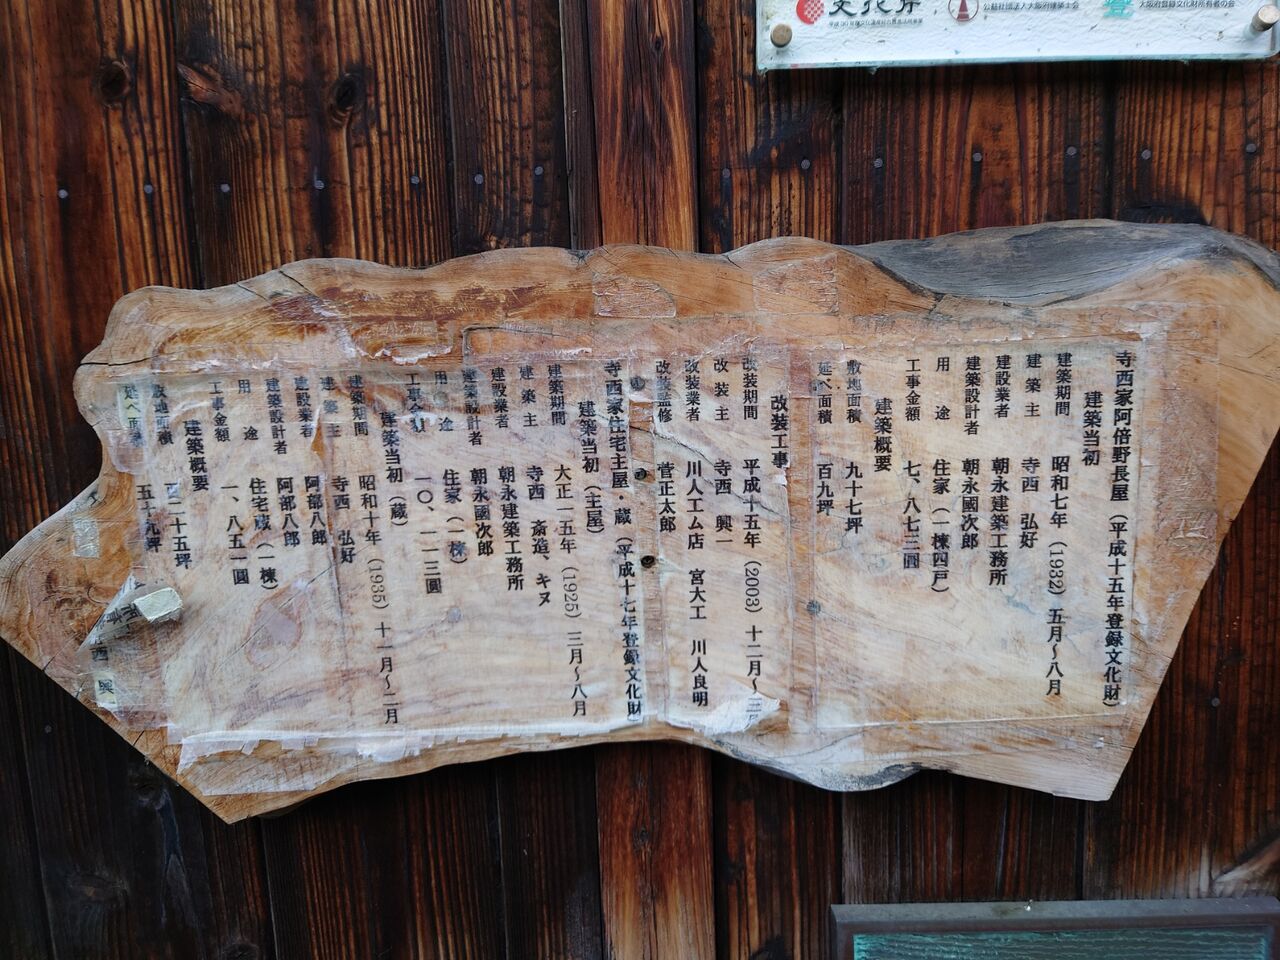 公益社団法人大阪府建築士会
大阪府登録文化財所有者の会
寺西家阿倍野長屋（平成十五年登録文化財）
建築当初
建築期間 昭和七年（1932）五月〜八月
建築主 寺西 弘好
建設業者 朝永建築工務所
建築設計者 朝永國次郎
用途 住家（一棟四戸）
工事金額 七、八七三圓
建築概要
敷地面積 九十七坪
延べ面積 百九坪
改装工事
改装期間 平成十五年（2003）十二月〜三月
改装主 寺西 興一
改装業者 川人工ム店 宮大工 川人良明
改装監修 菅正太郎
寺西家住宅主屋・蔵（平成十七年登録文化財）
建築当初（主屋）
建築期間 大正一五年（1925）三月〜八月
建築主 寺西 斎造、キヌ
建設業者 朝永建築工務所
建築設計者 朝永國次郎
用途 住家（一棟）
工事金額 一〇、一一三圓
建築当初（蔵）
建築期間 昭和十年（1935）十一月〜二月
建築主 寺西 弘好
建設業者 阿部八郎
建築設計者 阿部八郎
用途 住宅蔵（一棟）
工事金額 一、八五一圓
建築概要
敷地面積 百二十五坪
延べ面積 五十九坪
西 興